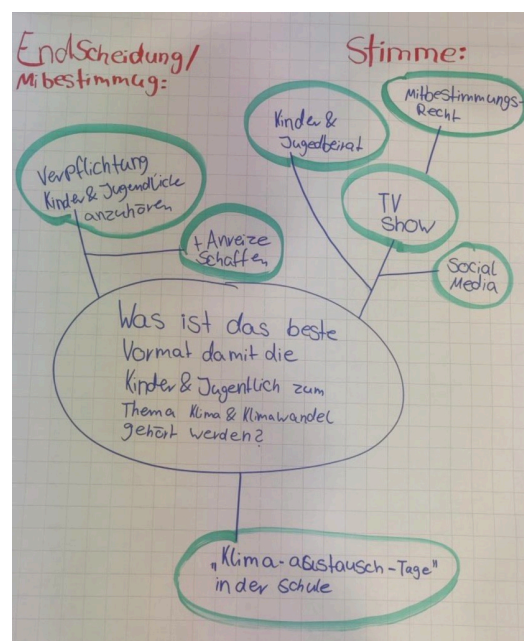 Endscheidung/
Mibestimmug:
Stimme:
Verpflichtung
Kinder & Jugendliche
anzuhören
+ Anreize
Schaffen
Kinder &
Jugedbeirat
Mitbestimmungs-
Recht
TV
Show
Social
Media
Was ist das beste
Vormat damit die
Kinder & Jugentlich zum
Thema Klima & Klimawandel
gehört werden?
„Klima-austausch-Tage"
in der Schule